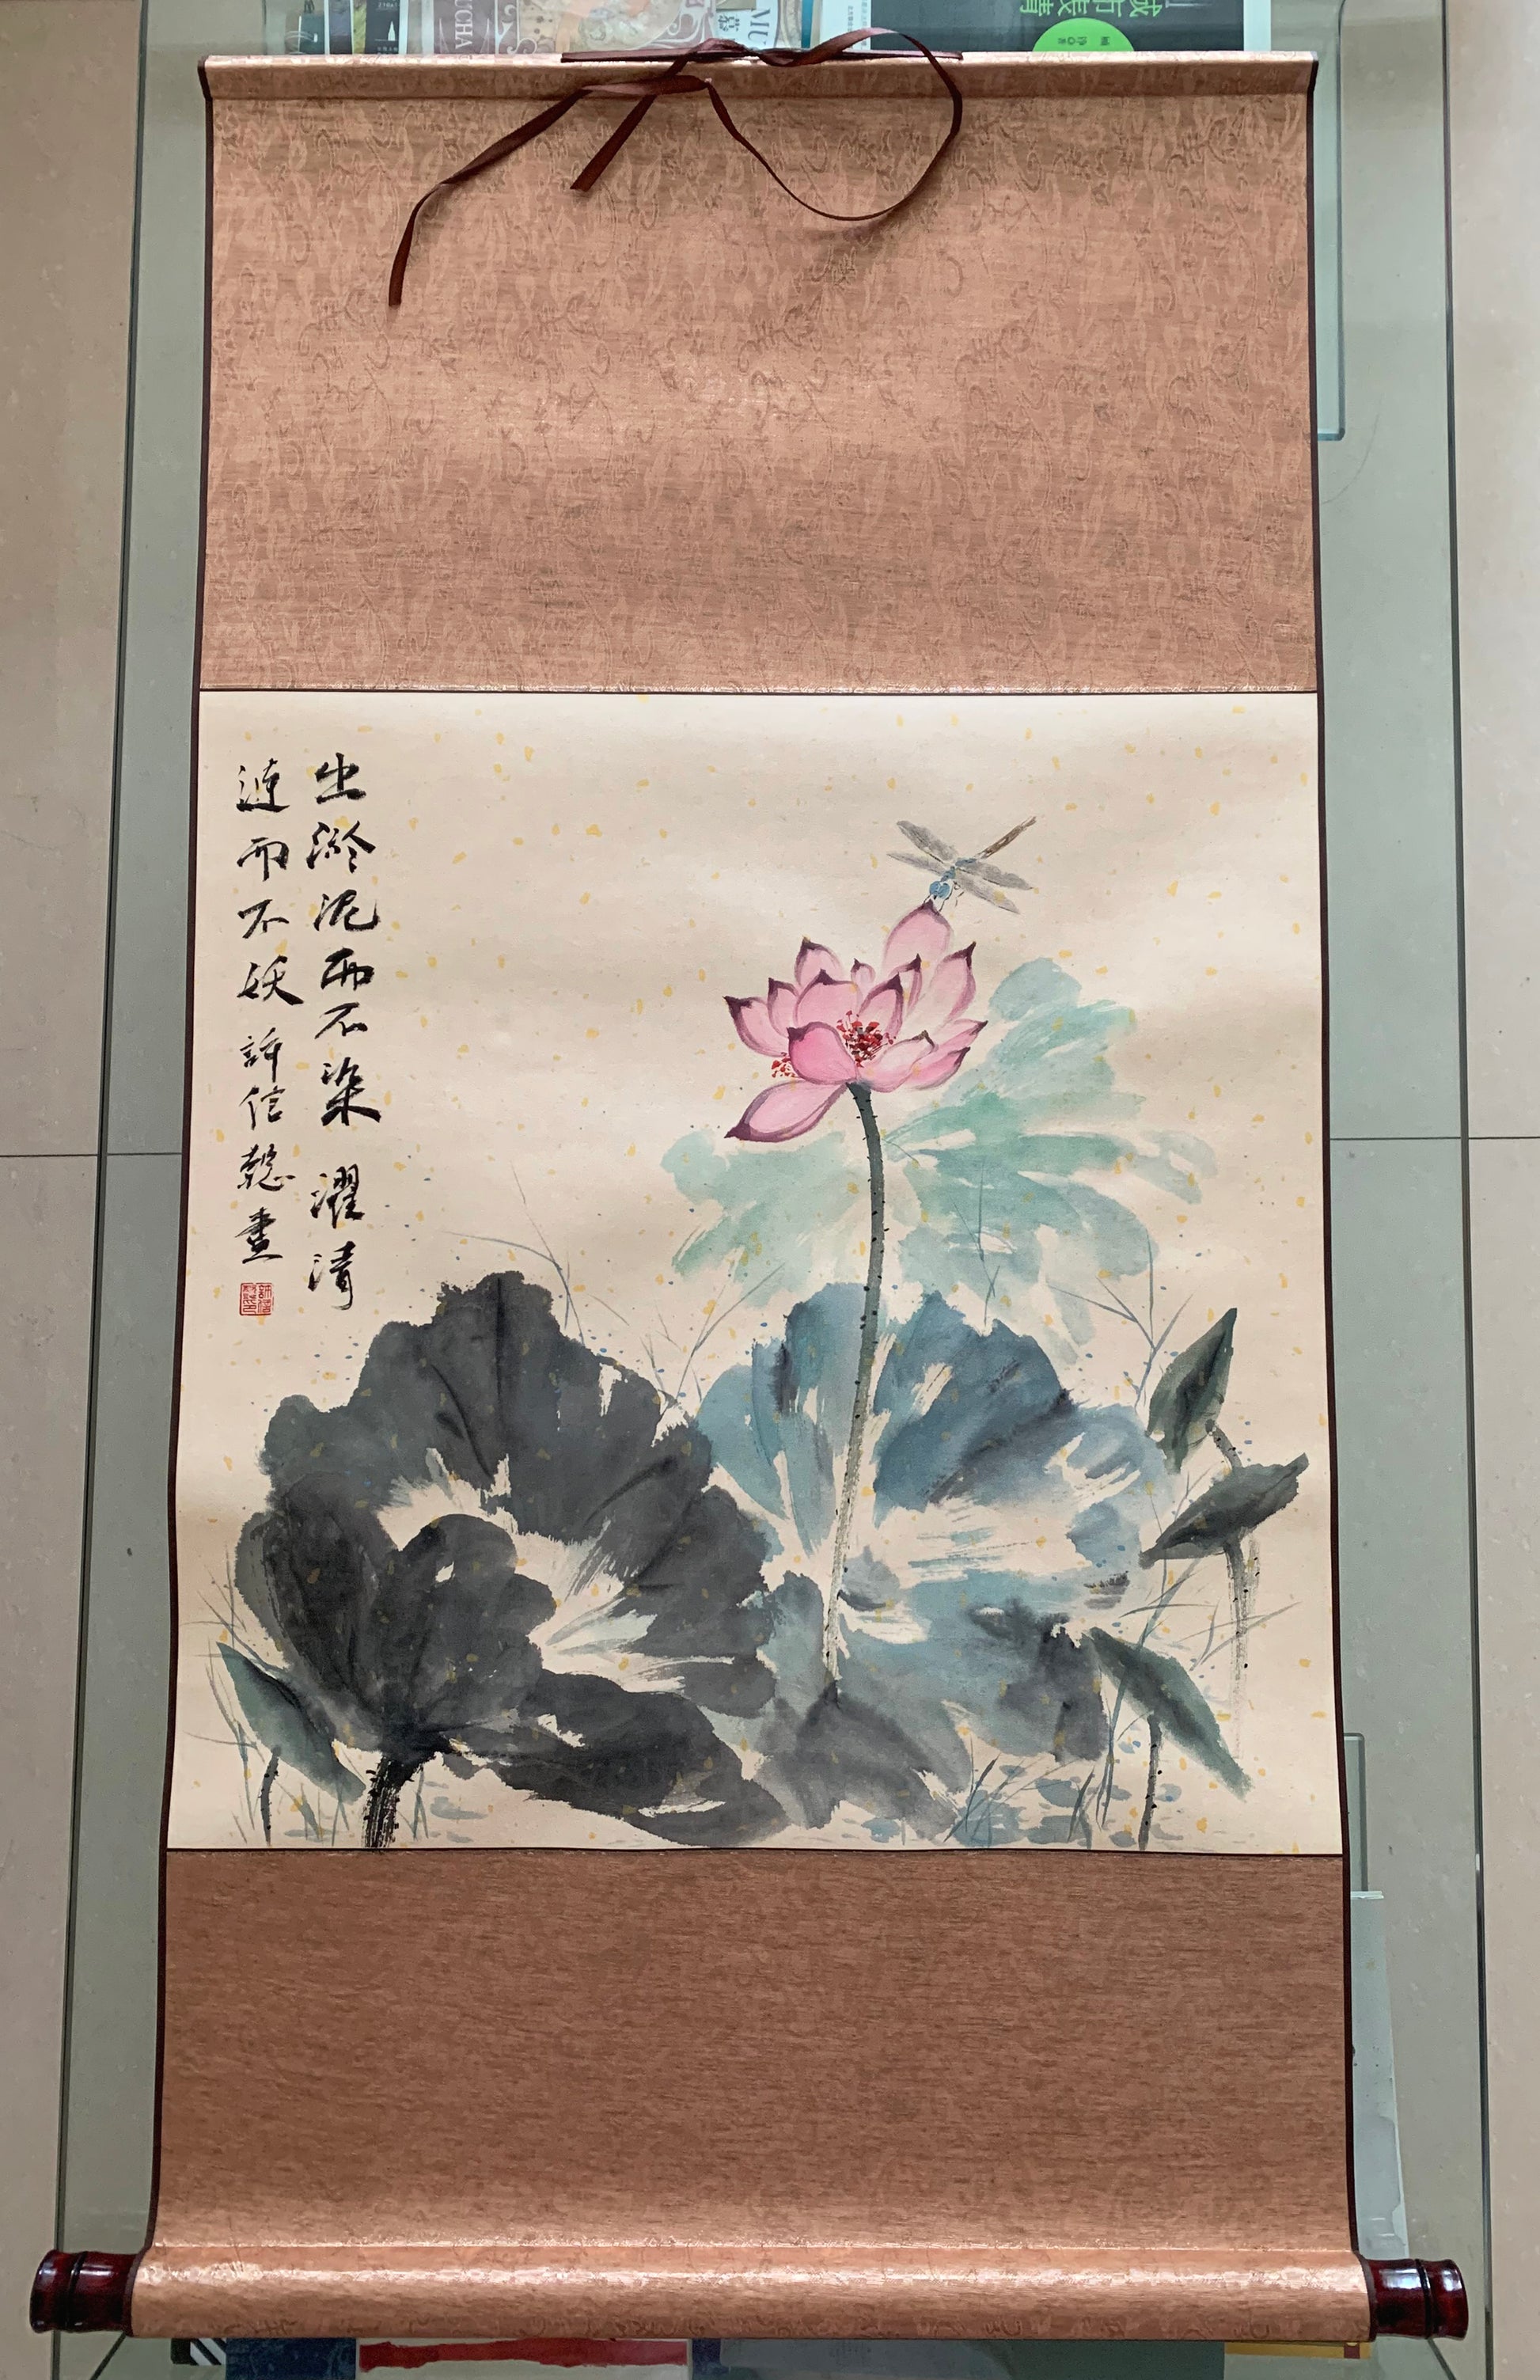 出淤泥而不染 濯清
漣而不妖 許信懿畫
UCHA
VIU